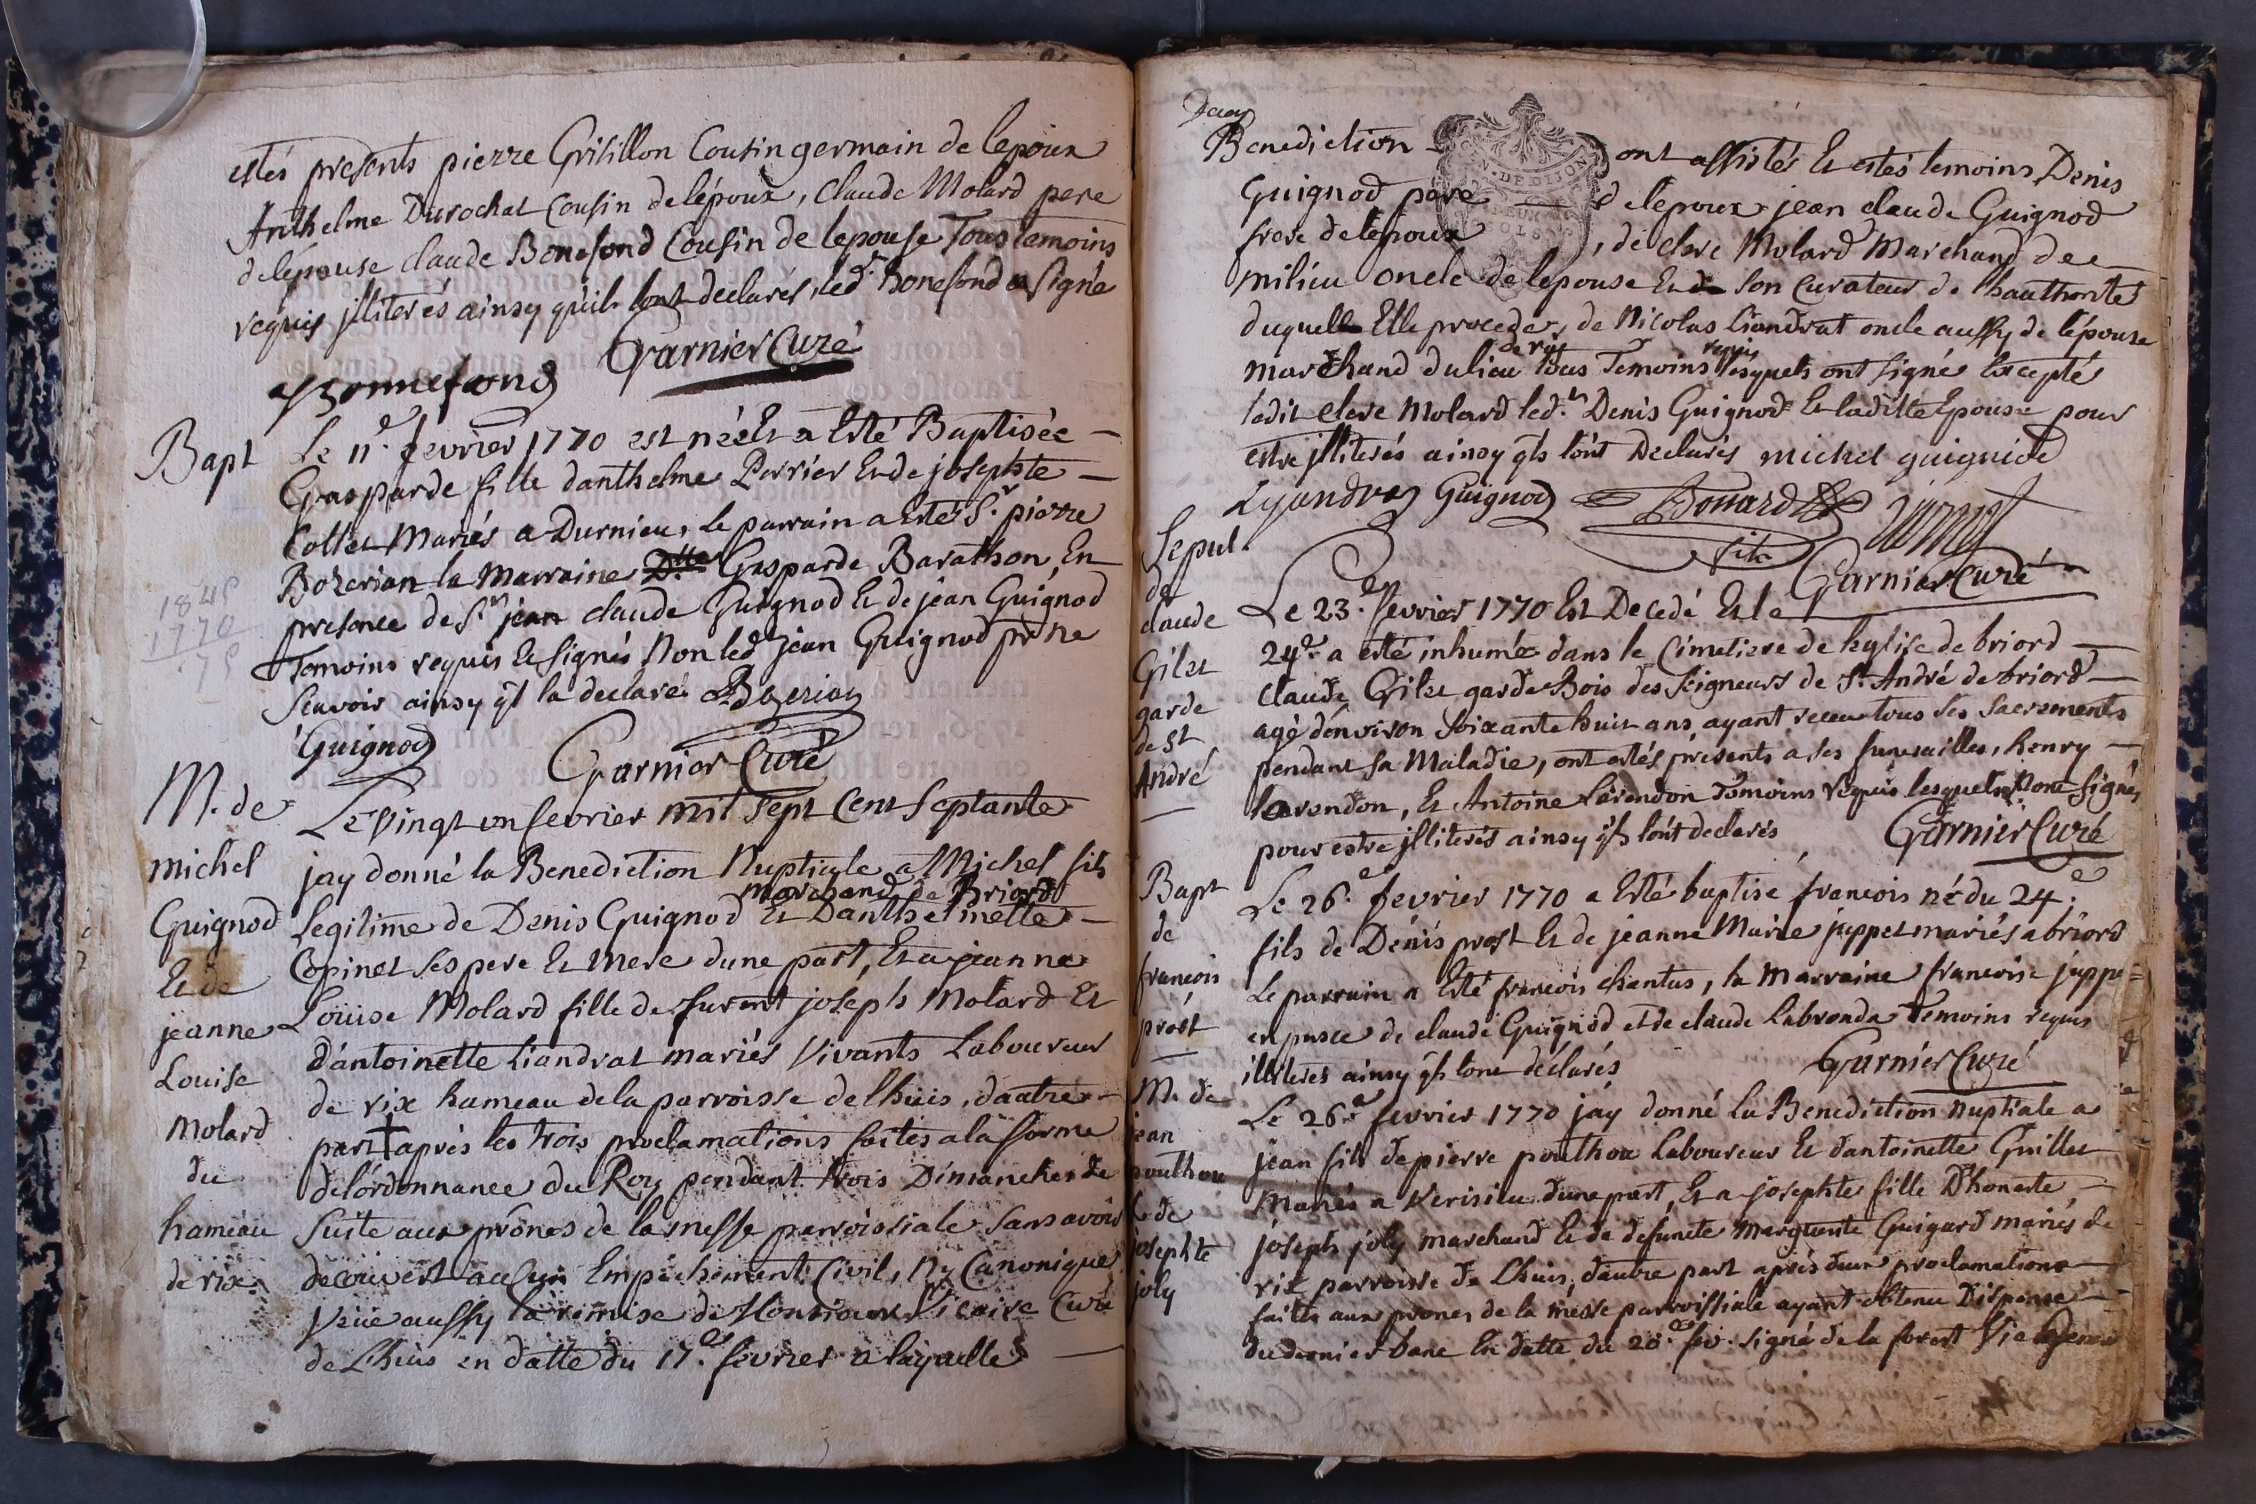 estés presents pierre Grisillon Cousin germain de lepoux
Anthelme Durochat Cousin de lépoux, Claude Molard pere
delépouse claude Bonefond Cousin de lepouse Tous temoins
requis jlliterés ainsy quils lont declarés, led.t Bonefond a signé
Garnier Curé
Bonnefond
Bapt
Le 11.e fevrier 1770 est néé Et a Esté Baptisée
Gasparde fille danthelme Perrier Et de josephte
Collet Mariés a Durnieu, le parrain a esté S.r pierre
Bozerian la Marraine D.lle Gasparde Barathon, En
presence de S.r jean claude Guignod Et de jean Guignod
Temoins requis Et signés Non led.t jean Guignod pr ne
scavoir ainsy ql la declaré Bozerian
1845
1770
75
Guignod
Garnier Curé
M. de
michel
Guignod
Et de
jeanne
Louise
Molard
du
hameau
de rix
Le vingt un fevrier mil sept Cent septante
jay donné la Benediction Nuptiale a Michel fils
marchand de Briord
Legitime de Denis Guignod Et Danthelmette
Copinet ses pere Et mere dune part, Et a jeanne
Louise Molard fille de furent joseph Molard Et
d'antoinette Liandrat mariés Vivants Laboureur
de rix hameau dela parroisse delhuis, dautre
part après les trois proclamations faites a la forme
delórdonnance du Roy pendant trois Dimanches de
suite aux prônes de la messe parroissiale sans avoir
decouvert aucun Empéchement Civil, Ny Canonique
Veüe aussy la remise de Monsieur Vicaire Curé
de Lhuis en datte du 17.e fevrier a laquelle
Benediction ont assistés Et estés temoins, Denis
Guignod pere de lepoux jean claude Guignod
frere delepoux, de clere Molard Marchand de
milieu oncle de lepouse Et de son Curateur de lhauthorité
duquell Elle procede, de Nicolas Liandrat oncle aussy de lépouse
de rix requis
marchand dulieu tous Temoins lesquels ont signés Excepté
ledit clere Molard led.t Denis Guignod Et laditte Epouse pour
estre jlliterés ainsy qls lont Declarés michel guignod
Lyandraz Guignod Bonard
fils
Garnier Curé
Sepul.
de
claude
Gilet
garde
de St
André
Le 23.e fevrier 1770 Est Decedé Et le
24.e a esté inhumé dans le Cimetiere de leglise de briord
Claude Gilet garde Bois des seigneurs de S.t André de briord
agé dénviron soixante huit ans, ayant receu tous ses sacrements
pendant sa Maladie, ont estés présents a ses funerailles, henry
larendon, Et Antoine Larendon Témoins requis lesquels Nont signés
pour estre jlliterés ainsy qls lont declarés Garnier Curé
Bapt
de
francois
prost
Le 26.e fevrier 1770 a Esté baptisé francois né du 24.e
fils de Dénis prost Et de jeanne Marie juppet mariés a briord
Le parrain a Esté francois chantus, la Marraine francoise juppe=
en pnsce de claude Guignod et de claude Labronda Temoins requis
illiterés ainsy qls lont déclarés Garnier Curé
M. de
jean
pouthou
Et de
josephte
joly
Le 26.e fevrier 1770 jay donné la Benediction nuptiale a
jean fils de pierre pouthou Laboureur Et dantoinette Guillet
Mariés a Verisieu dune part, Et a josephte fille D'honeste
joseph joly marchand Et de défuncte Marguerite Guigard mariés de
rix parroisse de Lhuis, dautre part aprés deux proclamations
faites aux prones de la messe parroissiale ayant obtenu Dispense
du dernier banc En datte du 20.e fev. signé de la forest Vic. general